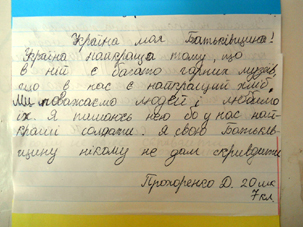 Україна моя Батьківщина!
Україна найкраща тому, що
в ній є багато гарних музеїв,
що в нас є найкращий хліб.
Ми поважаємо людей і любимо
їх. Я пишаюсь нею бо у нас най-
кращі солдати. Я свою Батьків-
щину нікому не дам скривдити
Прохоренко Д. 20 шк
7 кл.